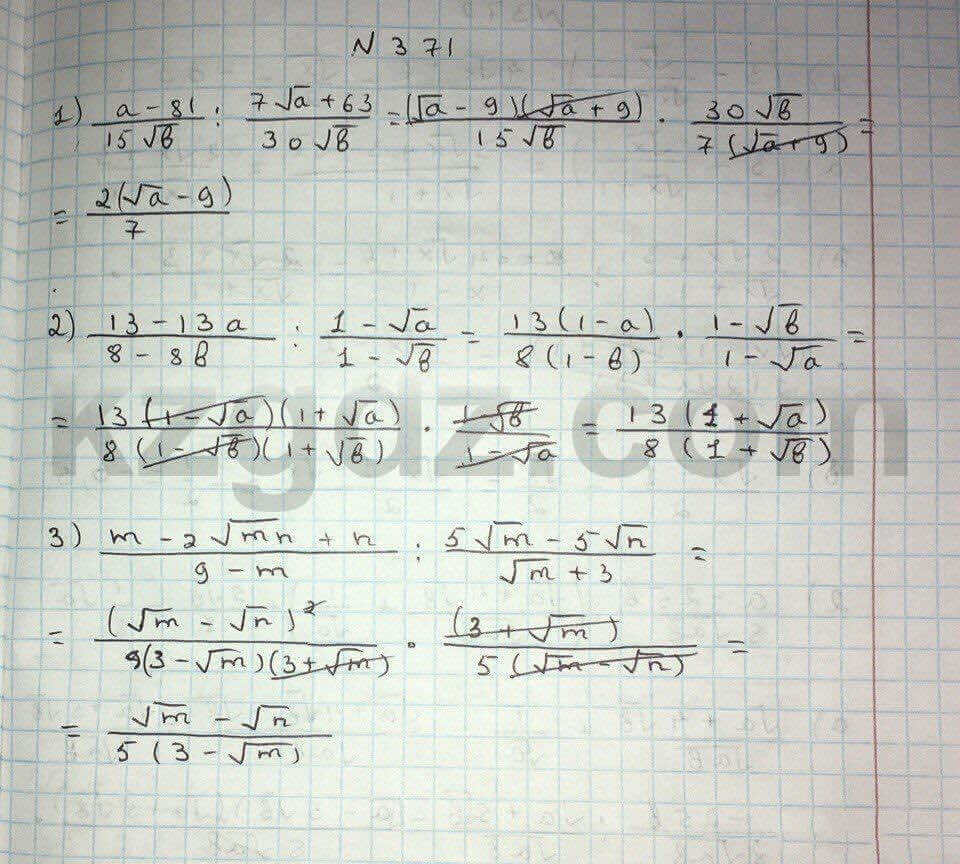 N 371
1) \frac{a-81}{15\sqrt{b}} : \frac{7\sqrt{a}+63}{30\sqrt{b}} = \frac{(\sqrt{a}-9)(\sqrt{a}+9)}{15\sqrt{b}} \cdot \frac{30\sqrt{b}}{7(\sqrt{a}+9)} =
= \frac{2(\sqrt{a}-9)}{7}
2) \frac{13-13a}{8-8b} : \frac{1-\sqrt{a}}{1-\sqrt{b}} = \frac{13(1-a)}{8(1-b)} \cdot \frac{1-\sqrt{b}}{1-\sqrt{a}} =
= \frac{13(1-\sqrt{a})(1+\sqrt{a})}{8(1-\sqrt{b})(1+\sqrt{b})} \cdot \frac{1-\sqrt{b}}{1-\sqrt{a}} = \frac{13(1+\sqrt{a})}{8(1+\sqrt{b})}
kzgdz.com
3) \frac{m-2\sqrt{mn}+n}{9-m} : \frac{5\sqrt{m}-5\sqrt{n}}{\sqrt{m}+3} =
= \frac{(\sqrt{m}-\sqrt{n})^2}{9(3-\sqrt{m})(3+\sqrt{m})} \cdot \frac{(3+\sqrt{m})}{5(\sqrt{m}-\sqrt{n})} =
= \frac{\sqrt{m}-\sqrt{n}}{5(3-\sqrt{m})}